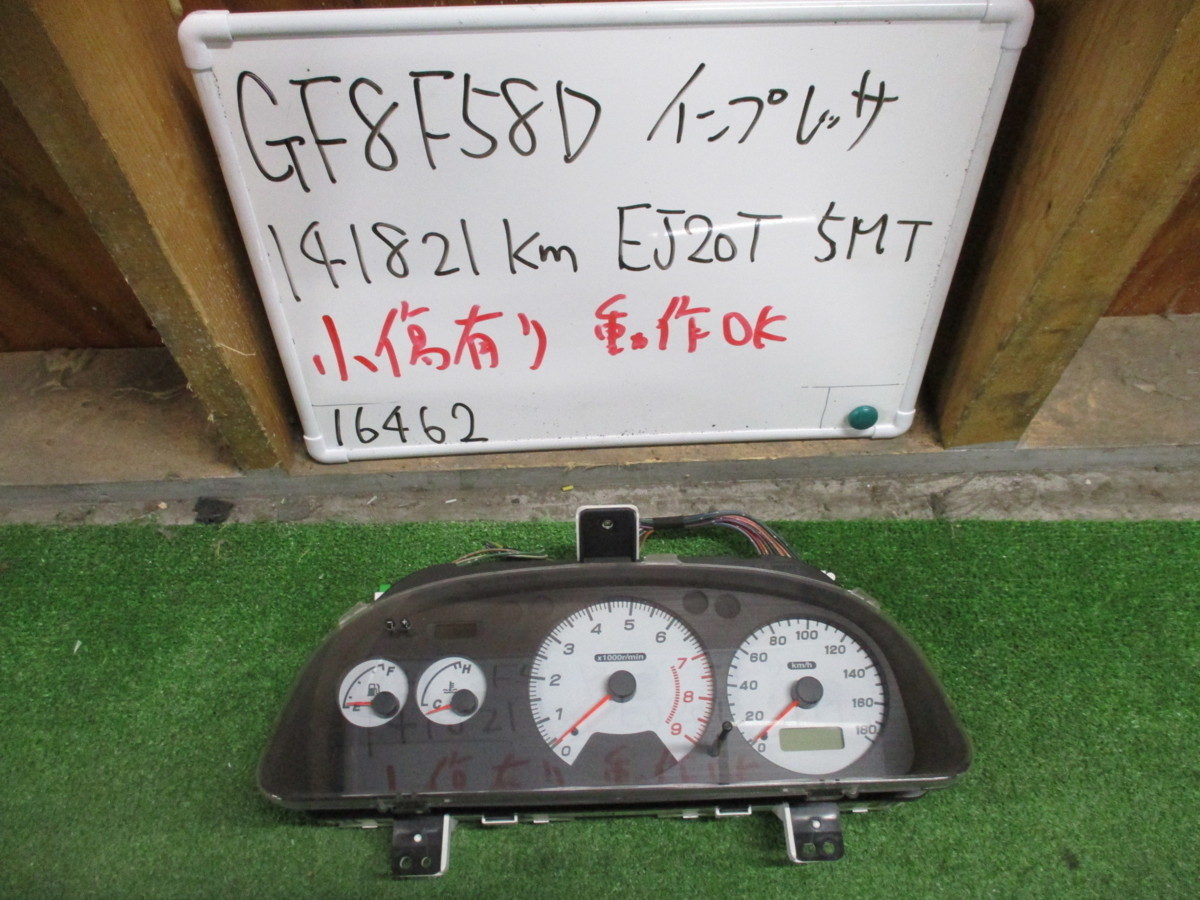 GF8F58D インプレッサ
141821km EJ20T 5MT
小傷有り 動作OK
16462
F
E
H
C
x1000r/min
0
1
2
3
4
5
6
7
8
9
km/h
0
20
40
60
80
100
120
140
160
180